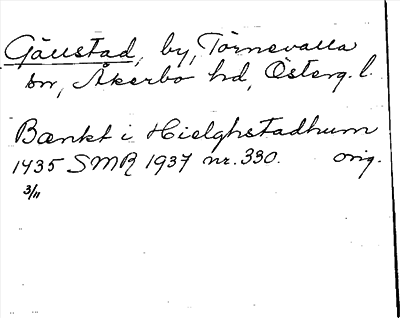 Gäustad, by, Törnevalla
sn, Åkerbo hd, Österg. l.
Bænkt i Hielghstadhum
1435 SMR 1937 nr. 330. orig.
3/11